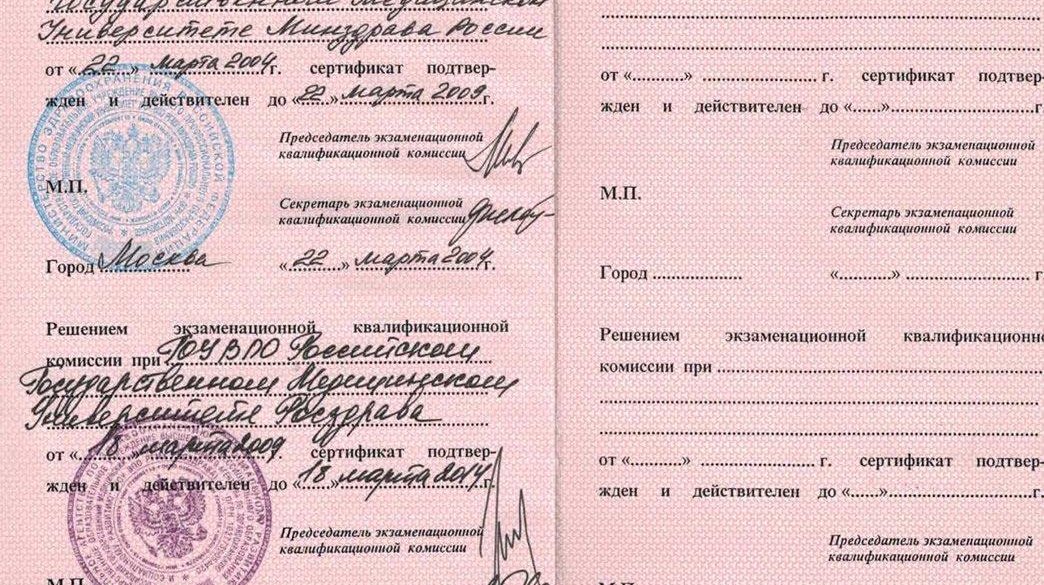 Государственном Медицинском
Университете Минздрава России
от «22» марта 2004 г. сертификат подтвер-
жден и действителен до «22» марта 2009 г.
Председатель экзаменационной
квалификационной комиссии
М.П.
Секретарь экзаменационной
квалификационной комиссии
Город Москва «22» марта 2004 г.
Решением экзаменационной квалификационной
комиссии при ГОУ ВПО Российском
Государственном Медицинском
Университете Росздрава
от «18» марта 2009 г. сертификат подтвер-
жден и действителен до «18» марта 2014 г.
Председатель экзаменационной
квалификационной комиссии
М.П.
от «.........» ..................... г. сертификат подтвер-
жден и действителен до «......»..........................г.
Председатель экзаменационной
квалификационной комиссии
М.П.
Секретарь экзаменационной
квалификационной комиссии
Город .................. «.........» ..................... г.
Решением экзаменационной квалификационно
комиссии при ............................................
от «.........» ..................... г. сертификат подтвер-
жден и действителен до «......»..........................г.
Председатель экзаменационной
квалификационной комиссии
М.П.